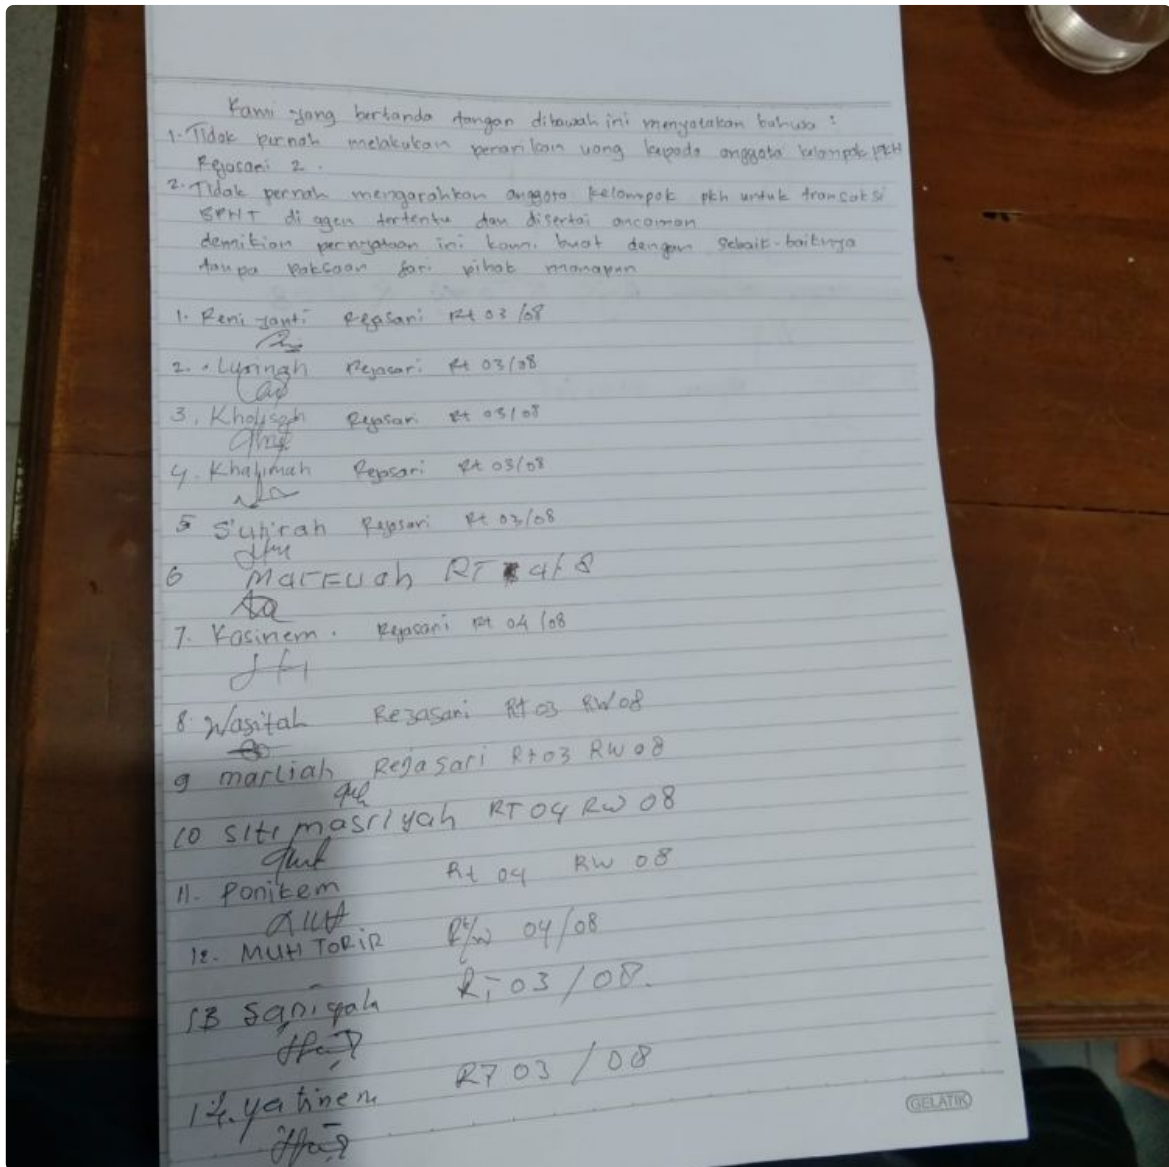 Kami yang bertanda tangan dibawah ini menyatakan bahwa :
1. Tidak pernah melakukan penarikan uang kepada anggota kelompok PKH
Rejasari 2 .
2. Tidak pernah mengarahkan anggota kelompok pkh untuk transaksi
BPNT di agen tertentu dan disertai ancaman
demikian pernyataan ini kami buat dengan sebaik-baiknya
tanpa paksaan dari pihak manapun
1. Reni yanti Rejasari Rt 03/08
2. Lyringah Rejasari Rt 03/08
3. Kholisah Rejasari Rt 03/08
4. Khalimah Rejasari Rt 03/08
5 Rejasari Rt 03/08
6 Marfuah RT 4/8
7. Kasinem. Rejasari Rt 04/08
8. Wasitah Rejasari Rt 03 RW 08
9 marliah Rejasari Rt 03 RW 08
10 siti masriyah RT 04 RW 08
11. Ponikem Rt 04 RW 08
12. MUH TORIR Rt/w 04/08
13 RT 03/08.
14. yatinem RT 03/08
GELATIK